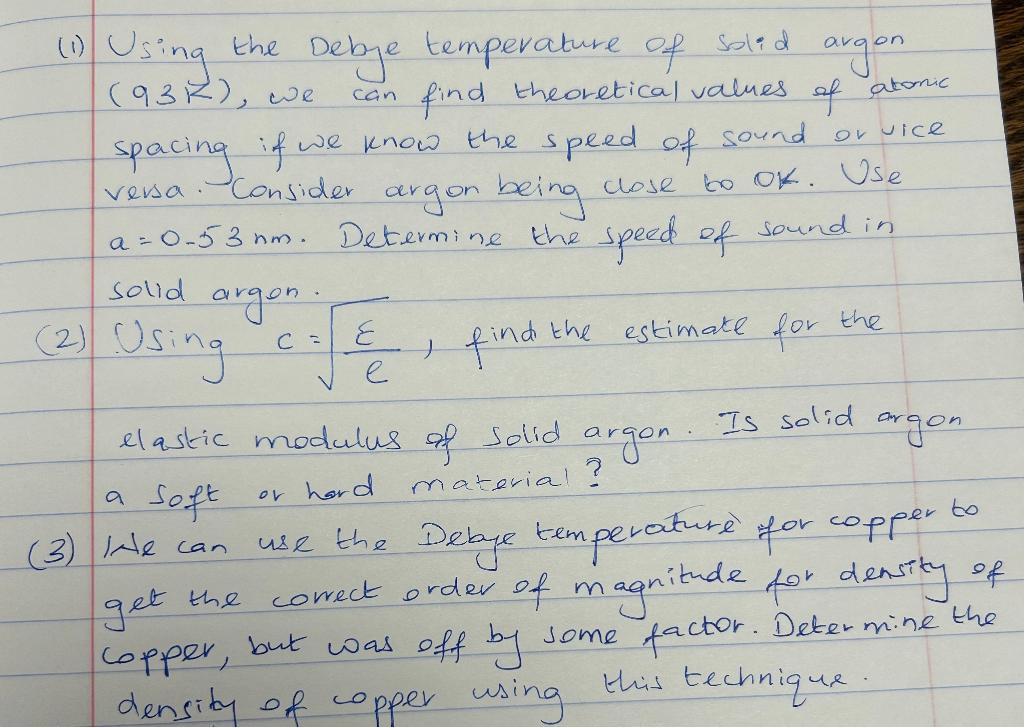 (1) Using the Debye temperature of solid argon
(93K), we can find theoretical values of atomic
spacing if we know the speed of sound or vice
versa. Consider argon being close to 0K. Use
a = 0.53 nm. Determine the speed of sound in
solid argon.
(2) Using c = √(ε/ρ), find the estimate for the
elastic modulus of solid argon. Is solid argon
a soft or hard material?
(3) We can use the Debye temperature for copper to
get the correct order of magnitude for density of
copper, but was off by some factor. Determine the
density of copper using this technique.